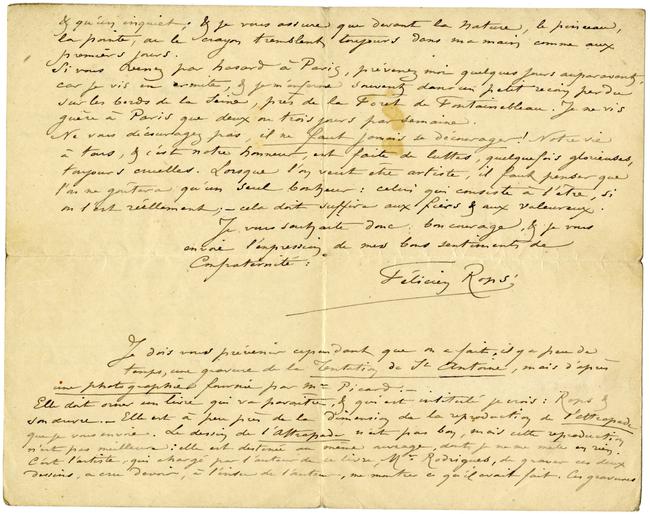 & qu'un inquiet. & je vous assure que devant la nature, le pinceau,
la pointe, ou le crayon tremblent toujours dans ma main comme aux
premiers jours.
Si vous venez par hasard à Paris, prévenez moi quelques jours auparavant,
car je vis en ermite, & je m'enforme souvent dans un petit recoin perdu
sur les bords de la Seine, près de la Foret de Fontainebleau. Je ne vis
guère à Paris que deux ou trois jours par semaine.
Ne vous découragez pas, il ne faut jamais se décourager! Notre vie
à tous, & c'est notre honneur, est faite de luttes, quelquefois glorieuses,
toujours cruelles. Lorsque l'on veut être artiste, il faut penser que
l'on ne goûtera qu'un seul bonheur: celui qui consiste à l'être, si
on l'est réellement; – cela doit suffire aux fiers & aux valeureux.
Je vous souhaite donc: bon courage, & je vous
envoie l'expression de mes bons sentiments de
Confraternité:
Félicien Rops
Je dois vous prévenir cependant que on a fait, il y a peu de
temps, une gravure de la Tentation de St Antoine, mais d'après
une photographie fournie par Mr Picard: –
Elle doit orner un livre qui va paraître, & qui est intitulé je crois: Rops &
son œuvre. – Elle est à peu près de la dimension de la reproduction de l'Attrapade
que je vous envoie. Le dessin de l'Attrapade n'est pas bon, mais cette reproduction
n'est pas meilleure: elle est destinée au même ouvrage, dont je ne me mêle en rien.
C'est l'artiste, qui chargé par l'auteur de ce livre, Mr Rodrigues, de graver ces deux
dessins, a cru devoir, à l'insu de l'auteur, me montrer ce qu'il avait fait. Ces gravures